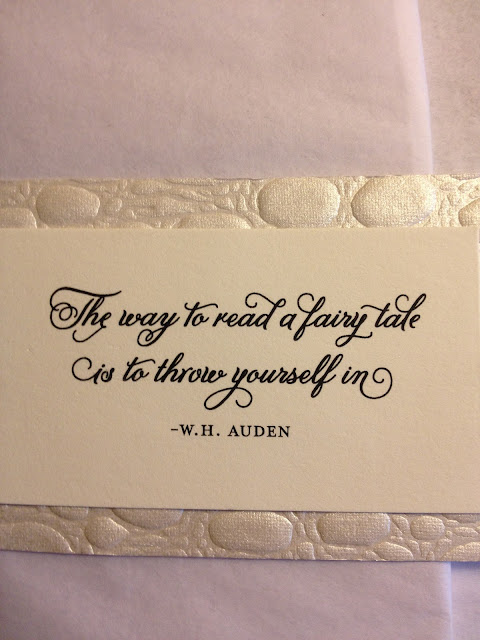 The way to read a fairy tale
is to throw yourself in
-W.H. AUDEN